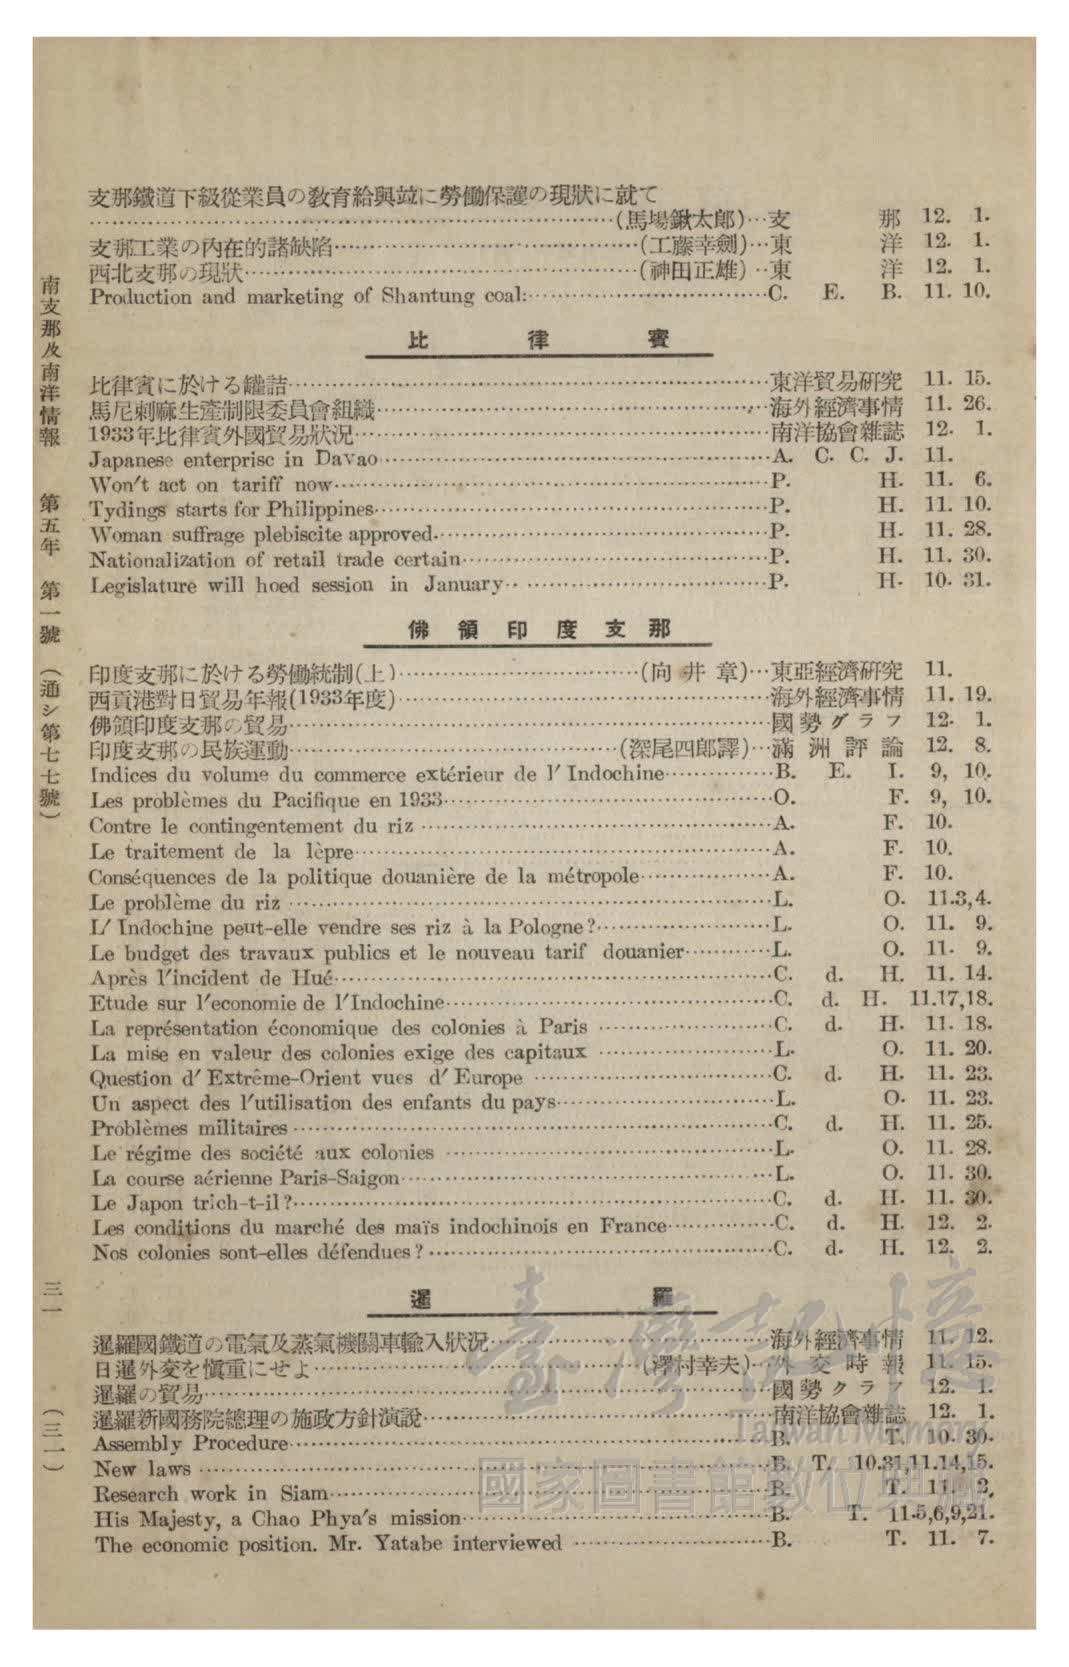 支那鐵道下級從業員の敎育給與竝に勞働保護の現狀に就て
……(馬場鍬太郎)…支 那 12. 1.
支那工業の內在的諸缺陷……(工藤幸劍)…東 洋 12. 1.
西北支那の現狀……(神田正雄)…東 洋 12. 1.
Production and marketing of Shantung coal:……C. E. B. 11. 10.
比律賓
比律賓に於ける罐詰……東洋貿易硏究 11. 15.
馬尼剌麻生產制限委員會組織……海外經濟事情 11. 26.
1933年比律賓外國貿易狀況……南洋協會雜誌 12. 1.
Japanese enterprise in Davao……A. C. C. J. 11.
Won't act on tariff now……P. H. 11. 6.
Tydings starts for Philippines……P. H. 11. 10.
Woman suffrage plebiscite approved……P. H. 11. 28.
Nationalization of retail trade certain……P. H. 11. 30.
Legislature will hoed session in January……P. H. 10. 31.
佛領印度支那
印度支那に於ける勞働統制(上)……(向井章)…東亞經濟硏究 11.
西貢港對日貿易年報(1933年度)……海外經濟事情 11. 19.
佛領印度支那の貿易……國勢グラフ 12. 1.
印度支那の民族運動……(深尾四郎譯)…滿洲評論 12. 8.
Indices du volume du commerce extérieur de l' Indochine……B. E. I. 9, 10.
Les problèmes du Pacifique en 1933……O. F. 9, 10.
Contre le contingentement du riz……A. F. 10.
Le traitement de la lèpre……A. F. 10.
Conséquences de la politique douanière de la métropole……A. F. 10.
Le problème du riz……L. O. 11.3,4.
L' Indochine peut-elle vendre ses riz à la Pologne?……L. O. 11. 9.
Le budget des travaux publics et le nouveau tarif douanier……L. O. 11. 9.
Après l'incident de Hué……C. d. H. 11. 14.
Etude sur l'economie de l'Indochine……C. d. H. 11.17,18.
La représentation économique des colonies à Paris……C. d. H. 11. 18.
La mise en valeur des colonies exige des capitaux……L. O. 11. 20.
Question d' Extrême-Orient vues d' Europe……C. d. H. 11. 23.
Un aspect des l'utilisation des enfants du pays……L. O. 11. 23.
Problèmes militaires……C. d. H. 11. 25.
Le régime des société aux colonies……L. O. 11. 28.
La course aérienne Paris-Saigon……L. O. 11. 30.
Le Japon trich-t-il?……C. d. H. 11. 30.
Les conditions du marché des maïs indochinois en France……C. d. H. 12. 2.
Nos colonies sont-elles défendues?……C. d. H. 12. 2.
暹羅
暹羅國鐵道の電氣及蒸氣機關車輸入狀況……海外經濟事情 11. 12.
日暹外交を愼重にせよ……(澤村幸夫)…外交時報 11. 15.
暹羅の貿易……國勢クラフ 12. 1.
暹羅新國務院總理の施政方針演說……南洋協會雜誌 12. 1.
Assembly Procedure……B. T. 10. 30.
New laws……B. T. 10.31,11.14,15.
Research work in Siam……B. T. 11. 2.
His Majesty, a Chao Phya's mission……B. T. 11.5,6,9,21.
The economic position. Mr. Yatabe interviewed……B. T. 11. 7.
南支那及南洋情報 第五年 第一號 (通シ第七七號) 三一 (三一)
臺灣記憶
Taiwan Memory
國家圖書館數位典藏